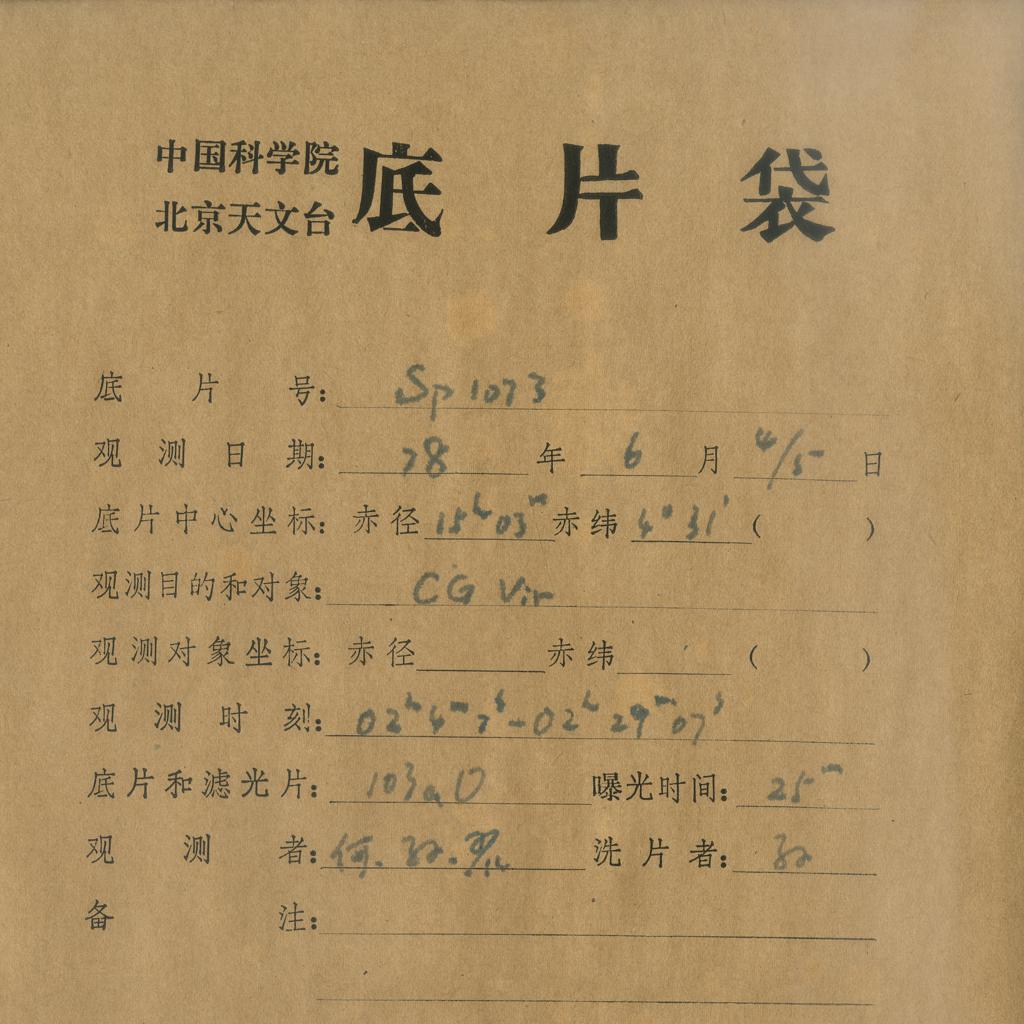 中国科学院
北京天文台
底片袋
底片号: Sp 1073
观测日期: 78 年 6 月 4/5 日
底片中心坐标: 赤径 15h 03m 赤纬 4° 31′ ( )
观测目的和对象: CG Vir
观测对象坐标: 赤径 赤纬 ( )
观测时刻: 02h 4m 7s - 02h 29m 07s
底片和滤光片: 103aO 曝光时间: 25m
观测者: 何. 孙. 洗片者: 孙
备注: